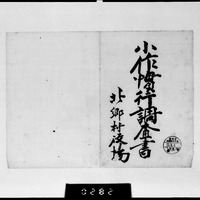 小作慣行調査書
北郷村役場
0282